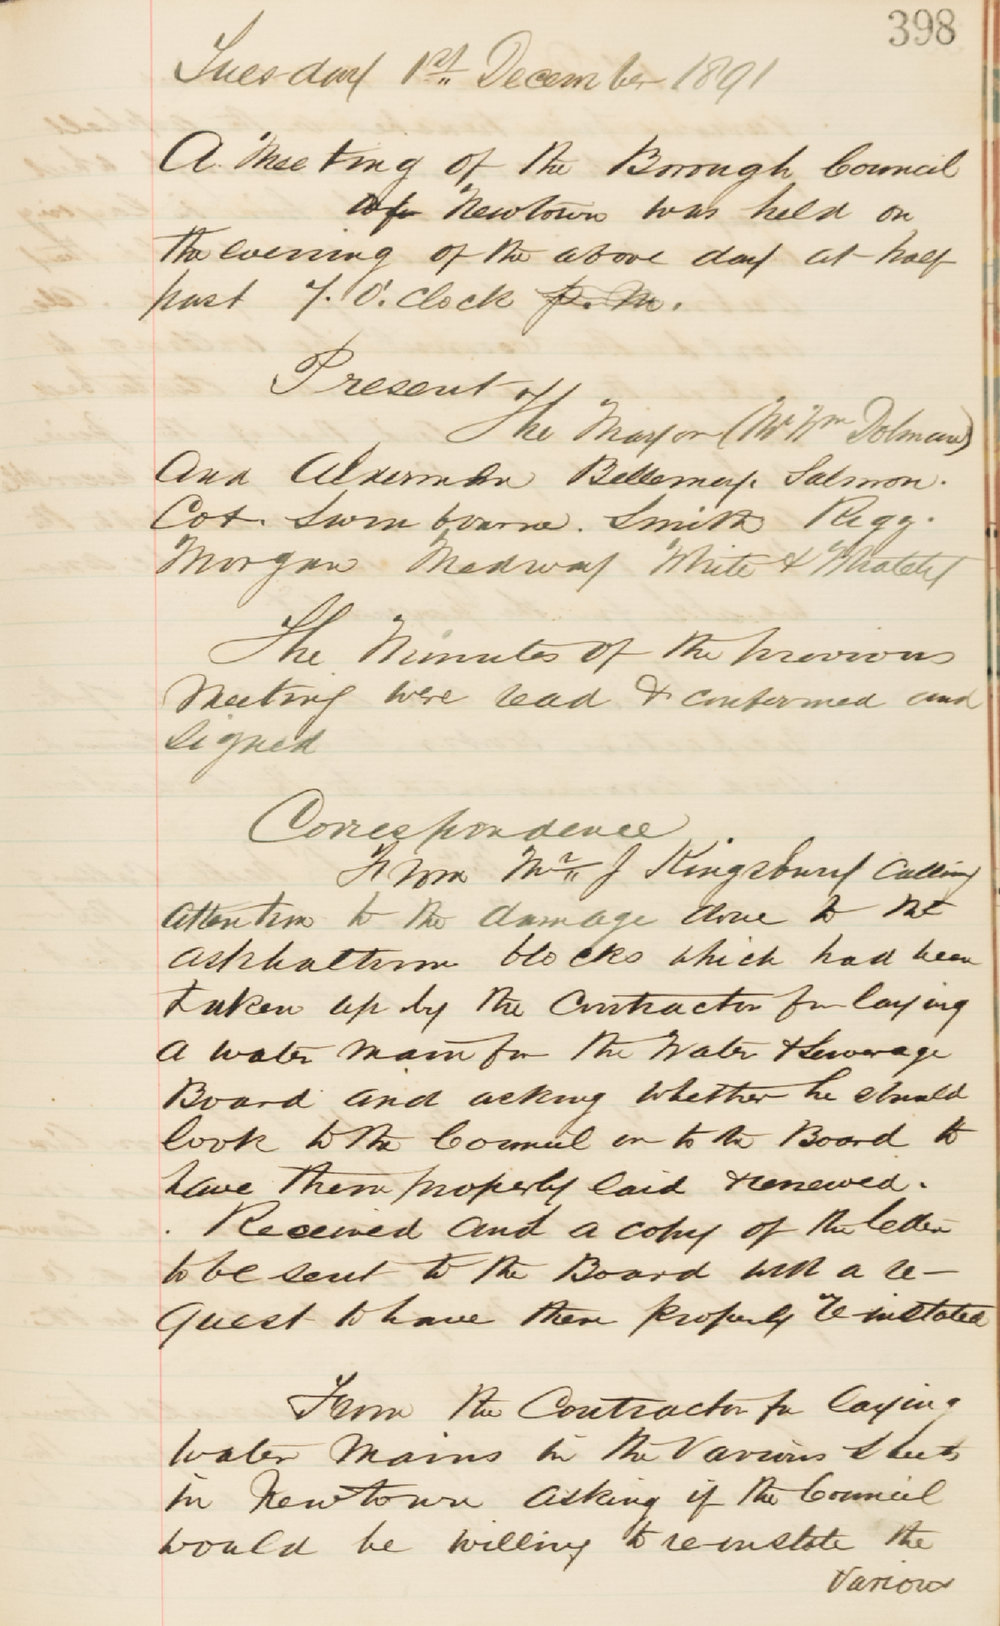 398
Tuesday 1st December 1891
A Meeting of the Borough Council
of Newtown was held on
the evening of the above day at half
past 7. O'.Clock p.m.
Present
The Mayor (Mr Wm Dolman)
and Aldermen Bellemey. Salmon.
Cox. Swinbourne. Smith Rigg.
Morgan Medway White & Whately
The Minutes of the previous
Meeting were read & confirmed and
Signed
Correspondence
From Mr J Kingsbury calling
attention to the damage done to the
asphaltum blocks which had been
taken up by the Contractor for laying
a water main for the Water & Sewerage
Board and asking whether he should
look to the Council or to the Board to
have them properly laid & renewed.
. Received and a copy of the letter
to be sent to the Board with a re-
quest to have them properly re-instated
From the Contractor for laying
water mains in the various streets
in Newtown asking if the Council
would be willing to re-instate the
various